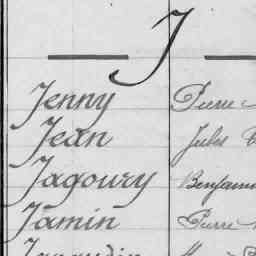 J
Jenny Pierre
Jean Jules
Jagoury Benjamin
Jamin Pierre